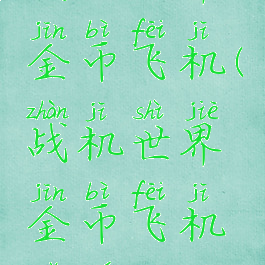 jīn bì fēi jī
金币飞机(
zhàn jī shì jiè
战机世界
jīn bì fēi jī
金币飞机